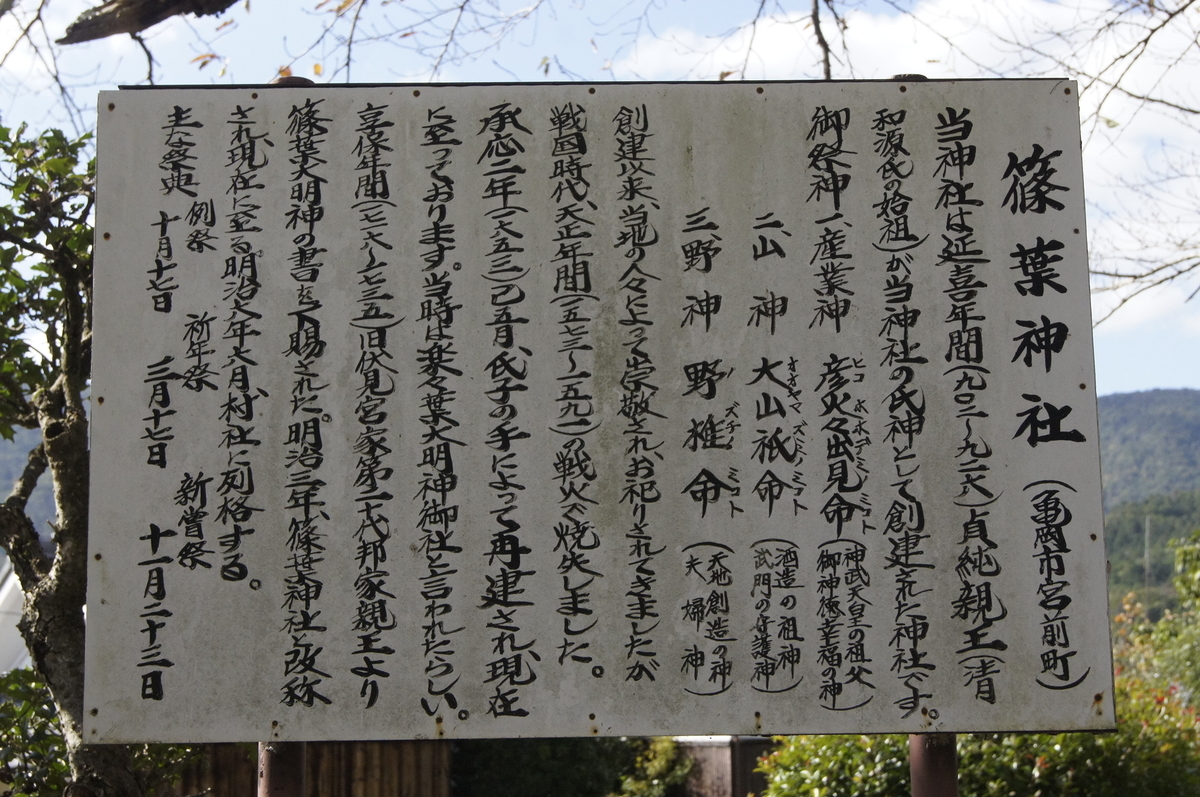 篠葉神社（亀岡市宮前町）
当神社は延喜年間（九〇二～九二六）貞純親王（清
和源氏の始祖）が当神社の氏神として創建された神社です。
御祭神 一産業神 彦火々出見命（神武天皇の祖父 御神徳幸福の神）
ヒコホホデミノミコト
二山神 大山祇命（酒造の祖神 武門の守護神）
オオヤマズミノミコト
三野神 野椎命（天地創造の神 夫婦神）
ノズチノミコト
創建以来、当地の人々によって崇敬され、お祀りされてきましたが
戦国時代、天正年間（一五七三～一五九一）の戦火で焼失しました。
承応二年（一六五三）乙五月、氏子の手によって再建され、現在
に至っております。当時は楽々葉大明神御社と言われたらしい。
享保年間（一七一六～一七三五）旧伏見宮家第二十代邦家親王より
篠葉大明神の書を下賜された。明治三年、篠葉神社と改称
され現在に至る。明治六年六月、村社に列格する。
主な祭典 例祭 祈年祭 新嘗祭
十月十七日 三月十七日 十一月二十三日